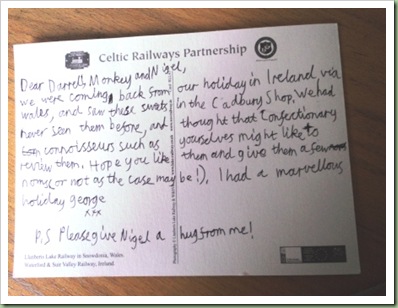 Celtic Railways Partnership
Dear Darrell, Monkey and Nigel,
we were coming back from our holiday in Ireland, via
wales, and saw these sweets in the Cadbury Shop. We had
never seen them before, and thought that Confectionary
connoisseurs such as yourselves might like to
review them. Hope you like them and give them a few
noms, or not as the case may be!), I had a marvellous
holiday george
xxx
P.S Please give Nigel a hug from me!
Llanberis Lake Railway in Snowdonia, Wales.
Waterford & Suir Valley Railway, Ireland.